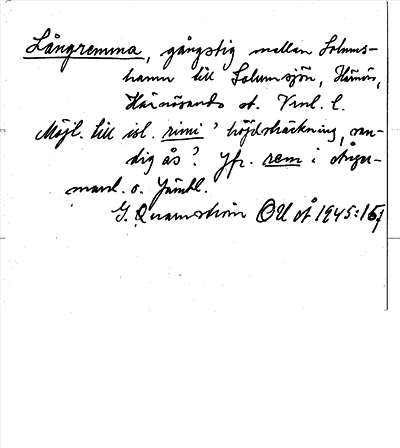 Långremma, gångstig mellan Solums-
hamn till Solumsjön, Härnön,
Härnösands st. Vnl. l.
Möjl. till isl. rimi 'höjdsträckning, san-
dig ås'? Jfr. rem i Ånger-
manl. o. Jämtl.
G. Quarnström OU åt 1945: